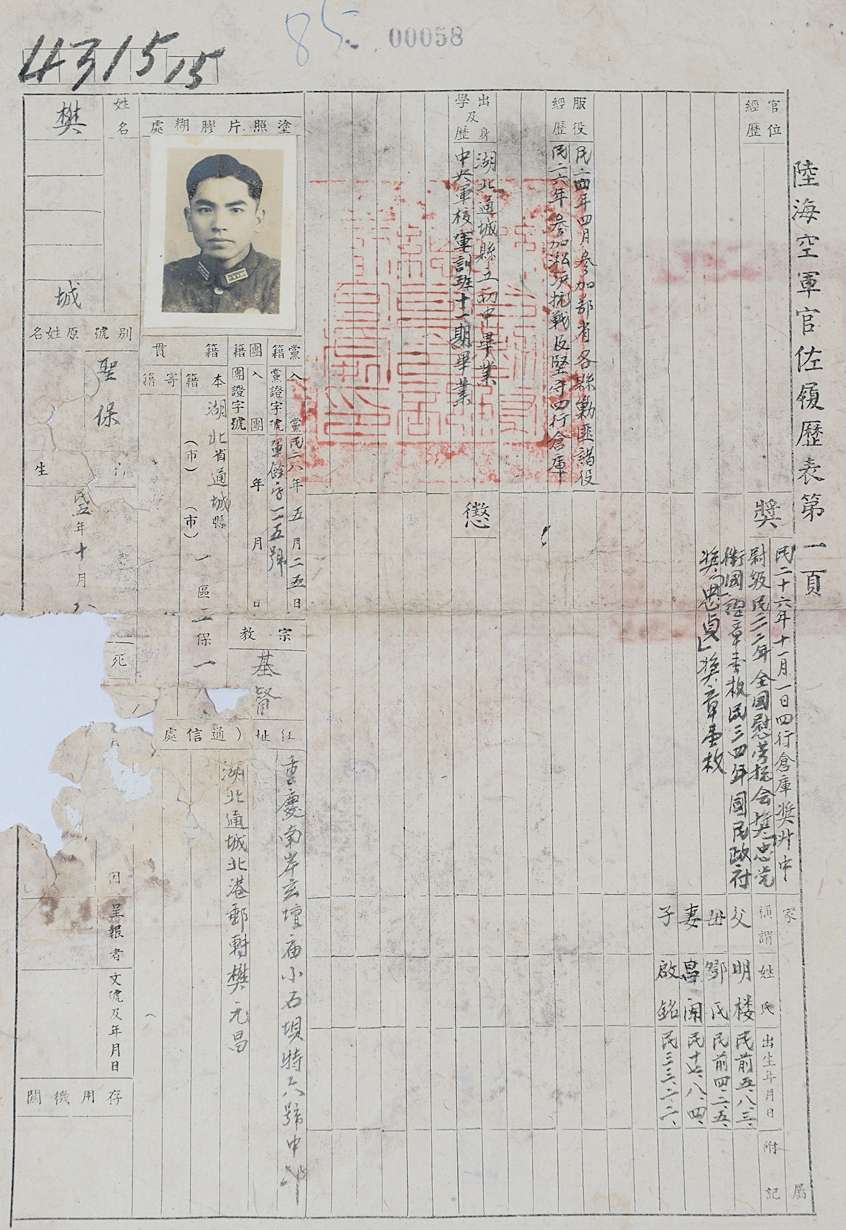 4431515
85
00058
陸海空軍官佐履歷表第一頁
官位
經歷
服役
經歷
民二四年四月參加鄂省各縣勦匪諸役
民二六年參加淞滬抗戰及堅守四行倉庫
出身
及
學歷
湖北通城縣立初中畢業
中央軍校軍訓班十一期畢業
獎
民二十六年十一月一日四行倉庫獎升中
尉級民二二年全國慰勞總會獎忠党
衛國證章壹枚民三四年國民政府
獎「忠貞」獎章壹枚
懲
家
屬
稱謂
姓氏
出生年月日
附記
父 明楼 民前五、八、三、
母 鄧氏 民前四、二、五、
妻 民十七、八、四、
子 啟銘 民三三、二、二、
姓名
樊城
別號原姓名
聖保
生
民五年十月
死
塗照片膠糊處
籍貫
本籍
湖北省通城縣
（市）（市）
一區二保一
寄籍
黨籍
入黨
民二八年五月二五日
黨證字號
軍儲字一二五號
團籍
入團
年月日
團證字號
宗教
基督
住址（通信處
重慶南岸玄壇庙小石壩特六號
湖北通城北港郵轉樊元昌
呈報者文號及年月日
存用機關